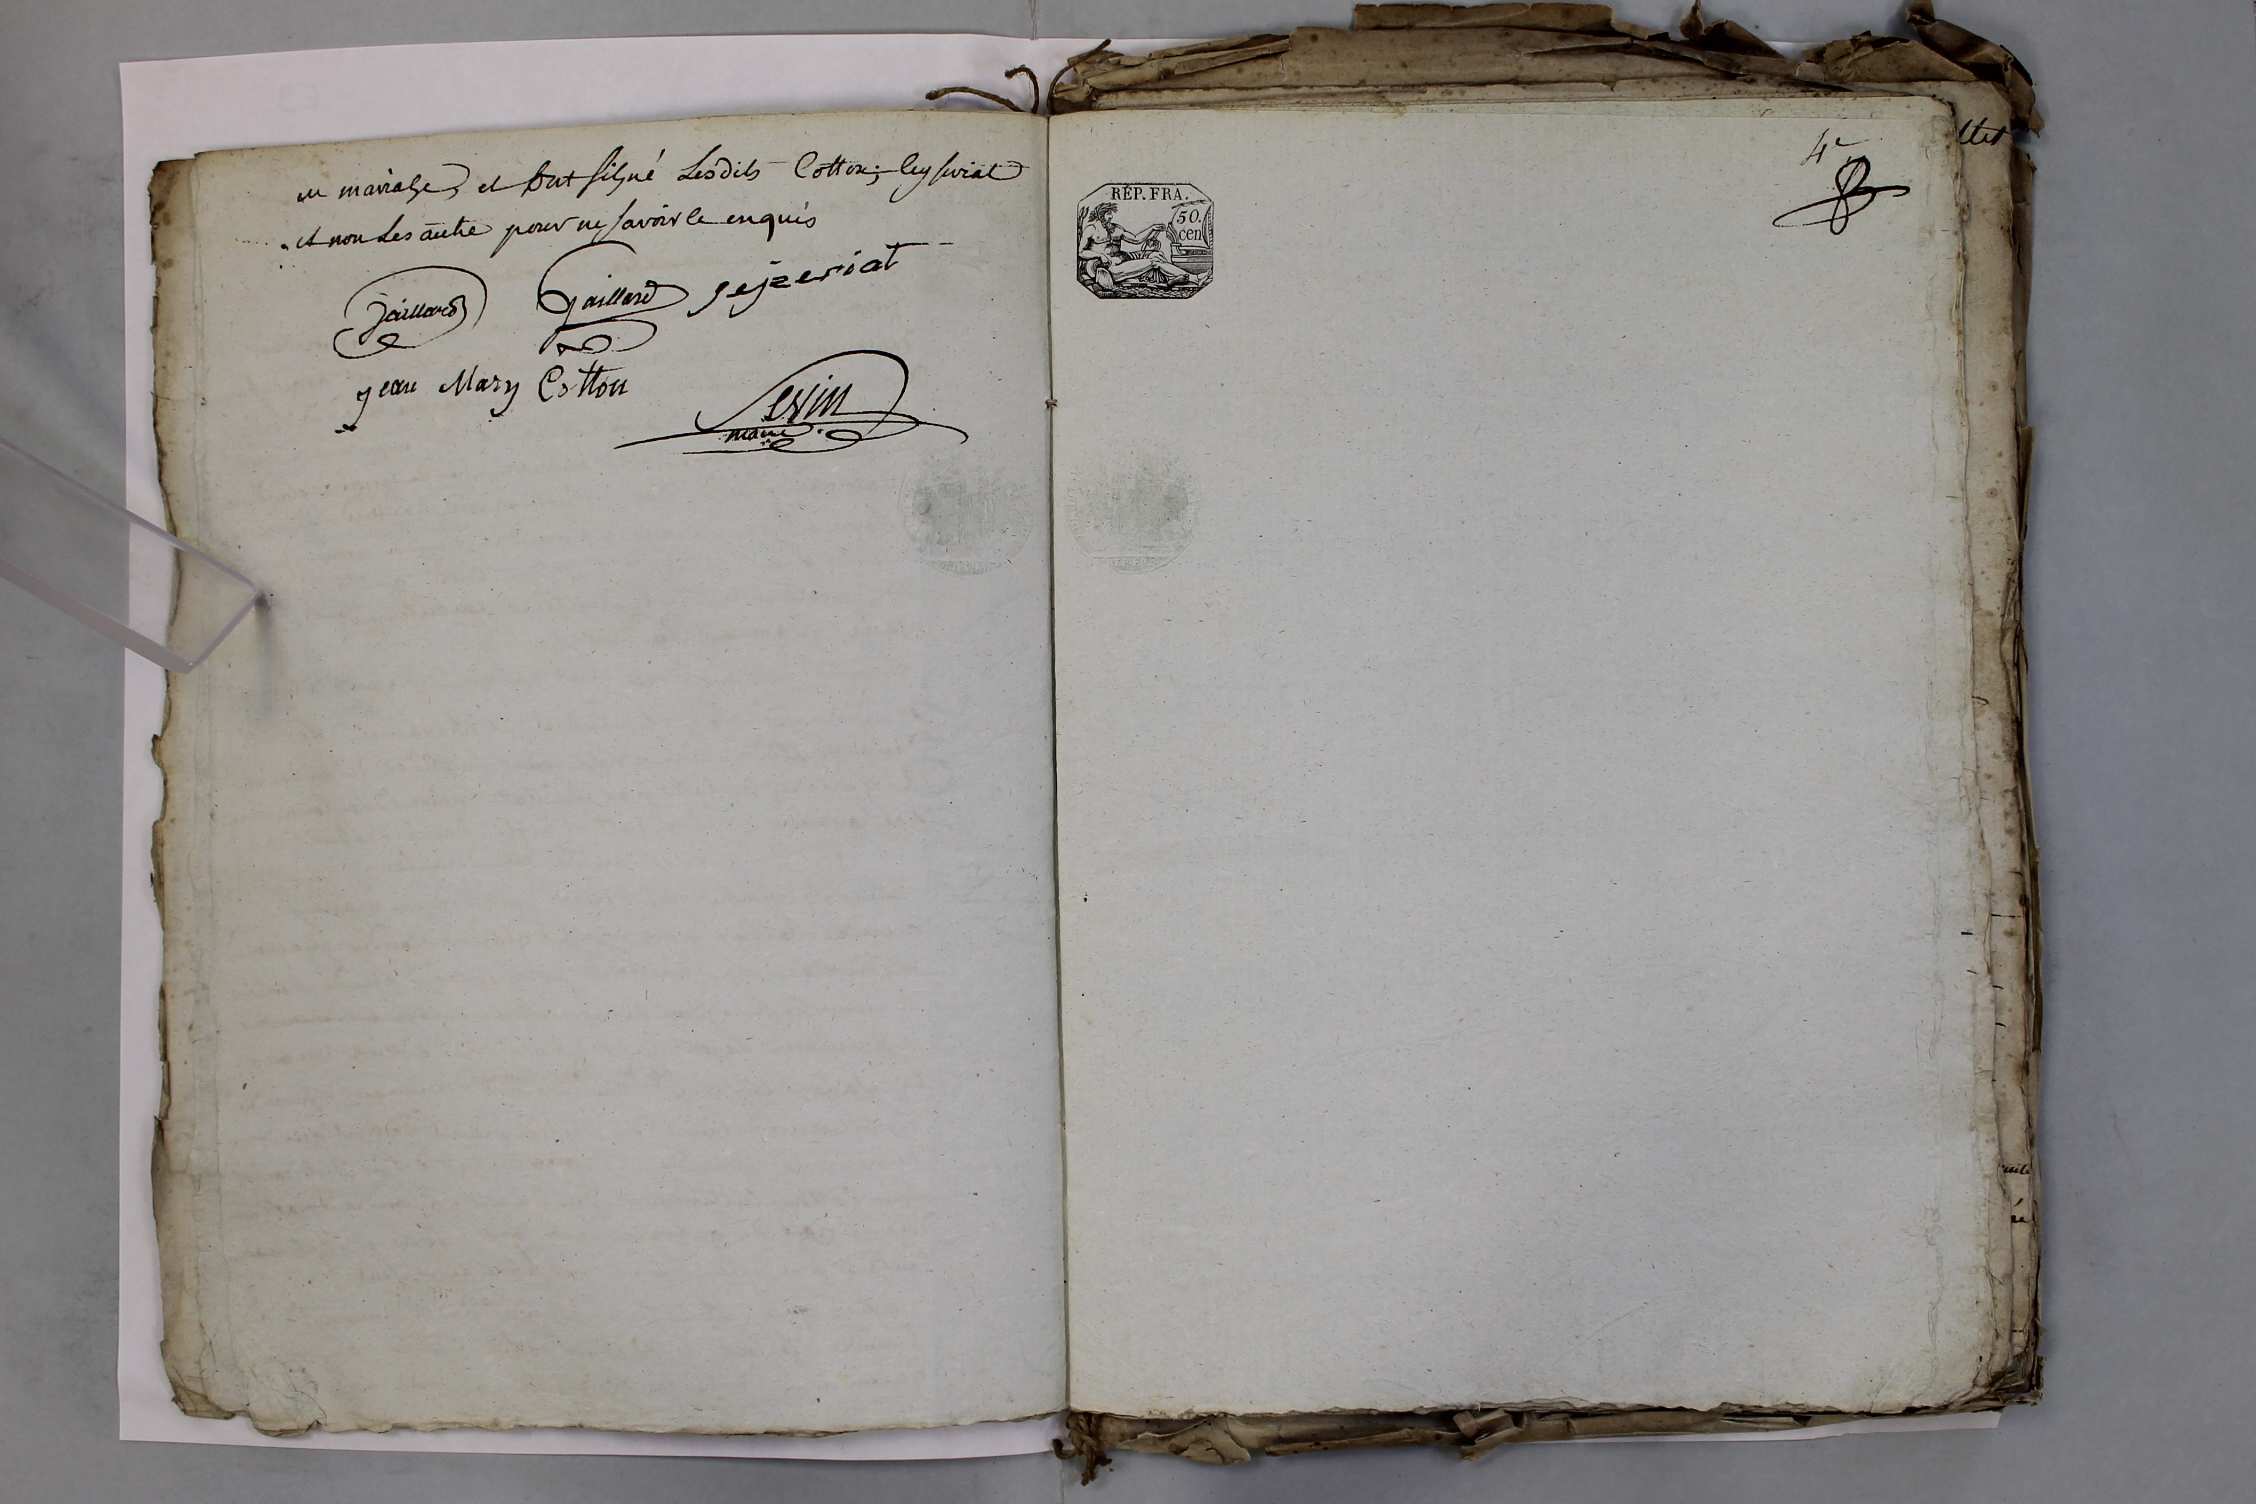 en mariage, et ont signé Lesdits Cotton, Ceyseriat
et non Les autre pour ne savoir le enquis
Gaillard Gaillard sejzeriat
jean Mary Cotton
Sevin
maire
4e
RÉP. FRA.
50.
cen